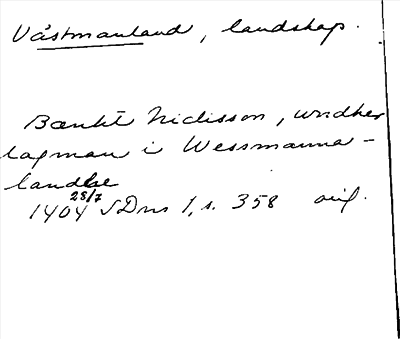 Västmanland, landskap.
Bænkt Niclisson, wndher
lagman i Wessmanna-
landhe
28/7
1404 SDns 1, s. 358 orig.